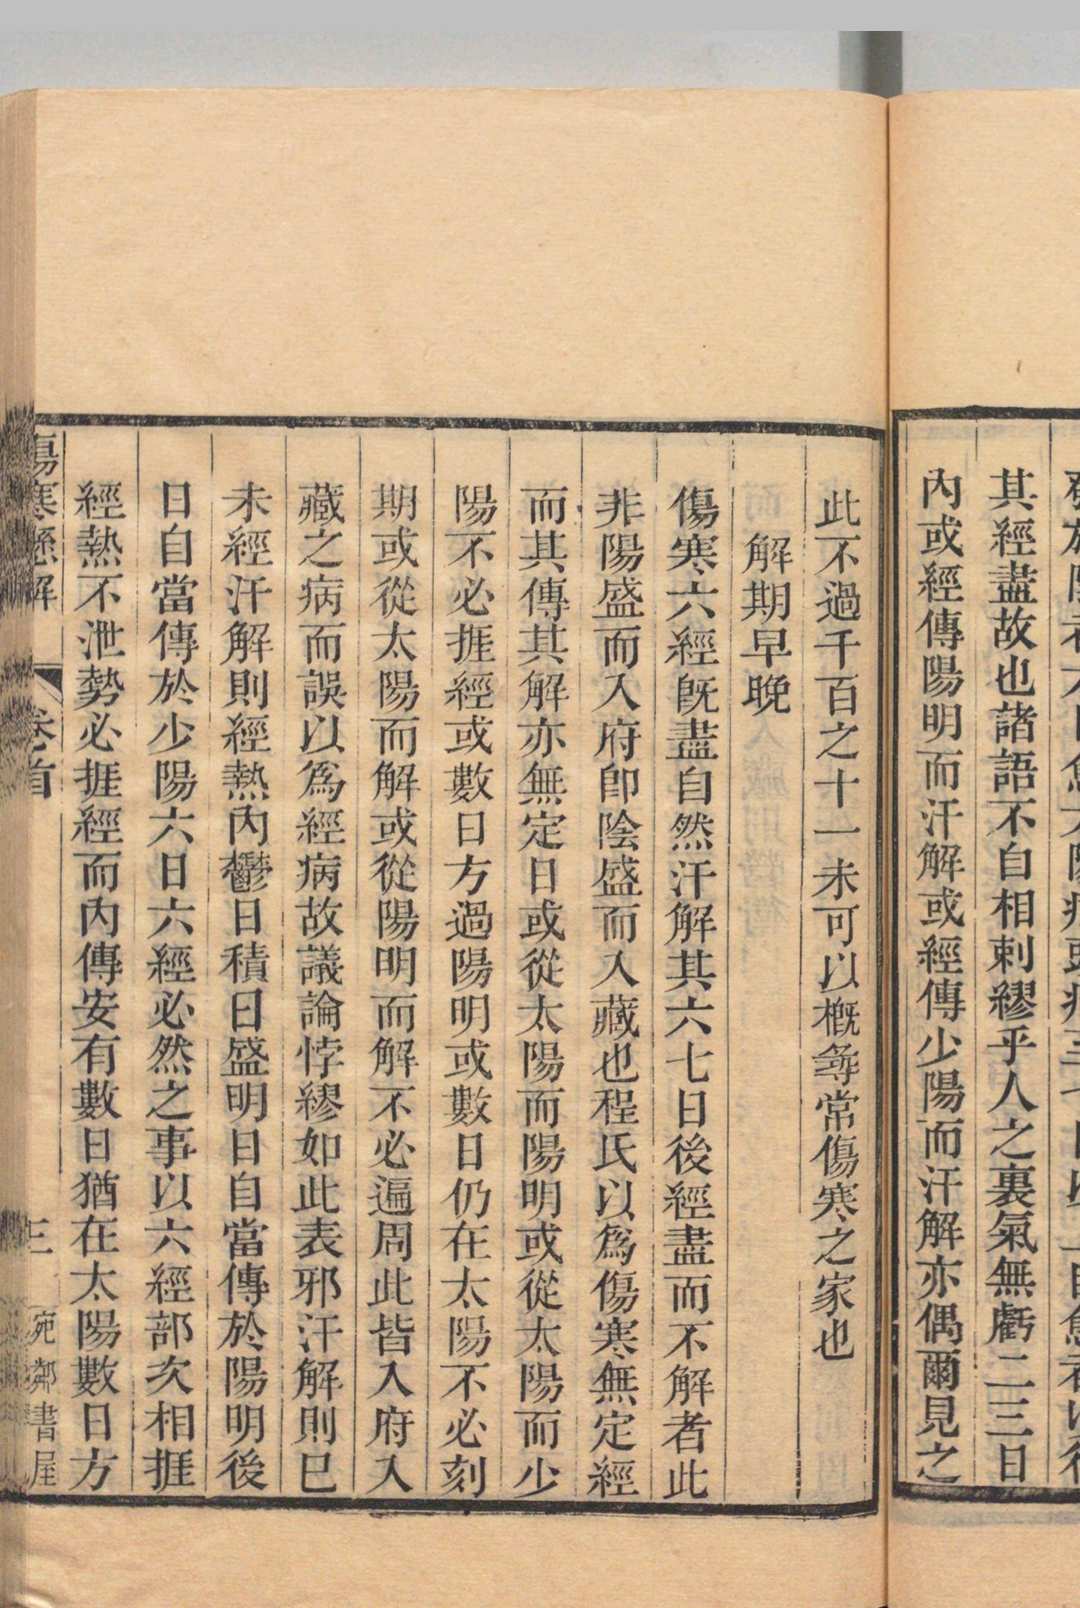 其經盡故也諸語不自相刺繆乎人之裏氣無虧二三日
內或經傳陽明而汗解或經傳少陽而汗解亦偶爾見之
此不過千百之十一未可以槪尋常傷寒之家也
解期早晚
傷寒六經旣盡自然汗解其六七日後經盡而不解者此
非陽盛而入府卽陰盛而入藏也程氏以爲傷寒無定經
而其傳其解亦無定日或從太陽而陽明或從太陽而少
陽不必捱經或數日方過陽明或數日仍在太陽不必刻
期或從太陽而解或從陽明而解不必遍周此皆入府入
藏之病而誤以爲經病故議論悖繆如此表邪汗解則已
未經汗解則經熱內鬱日積日盛明日自當傳於陽明後
日自當傳於少陽六日六經必然之事以六經部次相捱
經熱不泄勢必捱經而內傳安有數日猶在太陽數日方
傷寒懸解 卷首 三 宛鄰書屋